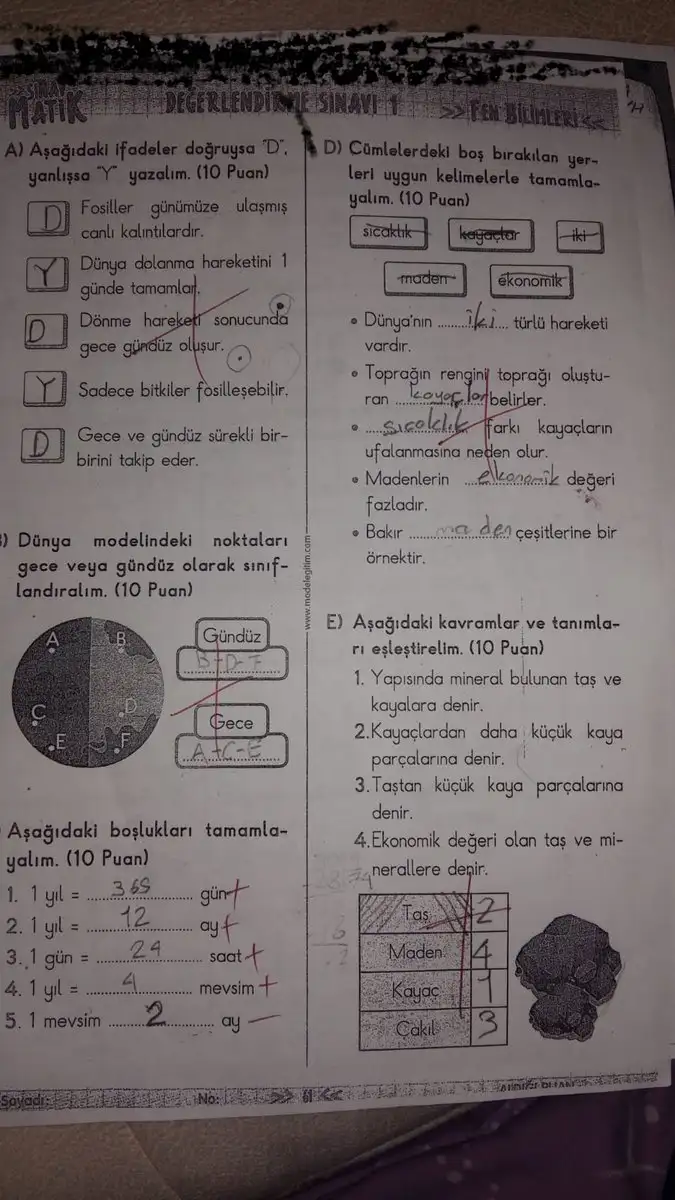 SINAV
MATİK
DEĞERLENDİRME SINAVI 1
>> FEN BİLİMLERİ <<
A) Aşağıdaki ifadeler doğruysa "D",
yanlışsa "Y" yazalım. (10 Puan)
D Fosiller günümüze ulaşmış
canlı kalıntılardır.
Y Dünya dolanma hareketini 1
günde tamamlar.
D Dönme hareketi sonucunda
gece gündüz oluşur.
Y Sadece bitkiler fosilleşebilir.
D Gece ve gündüz sürekli bir-
birini takip eder.
B) Dünya modelindeki noktaları
gece veya gündüz olarak sınıf-
landıralım. (10 Puan)
A B
C D
E F
Gündüz
B-D-F
Gece
A-C-E
Aşağıdaki boşlukları tamamla-
yalım. (10 Puan)
1. 1 yıl = 365 gün +
2. 1 yıl = 12 ay +
3. 1 gün = 24 saat +
4. 1 yıl = 4 mevsim +
5. 1 mevsim 2 ay —
www.modelegitim.com
D) Cümlelerdeki boş bırakılan yer-
leri uygun kelimelerle tamamla-
yalım. (10 Puan)
sıcaklık kayaçlar iki
maden ekonomik
• Dünya'nın iki türlü hareketi
vardır.
• Toprağın rengini toprağı oluştu-
ran kayaçlar belirler.
• sıcaklık farkı kayaçların
ufalanmasına neden olur.
• Madenlerin ekonomik değeri
fazladır.
• Bakır maden çeşitlerine bir
örnektir.
E) Aşağıdaki kavramlar ve tanımla-
rı eşleştirelim. (10 Puan)
1. Yapısında mineral bulunan taş ve
kayalara denir.
2. Kayaçlardan daha küçük kaya
parçalarına denir.
3. Taştan küçük kaya parçalarına
denir.
4. Ekonomik değeri olan taş ve mi-
nerallere denir.
Taş 2
Maden 4
Kayaç 1
Çakıl 3
Soyadı: No: >> 61 <<